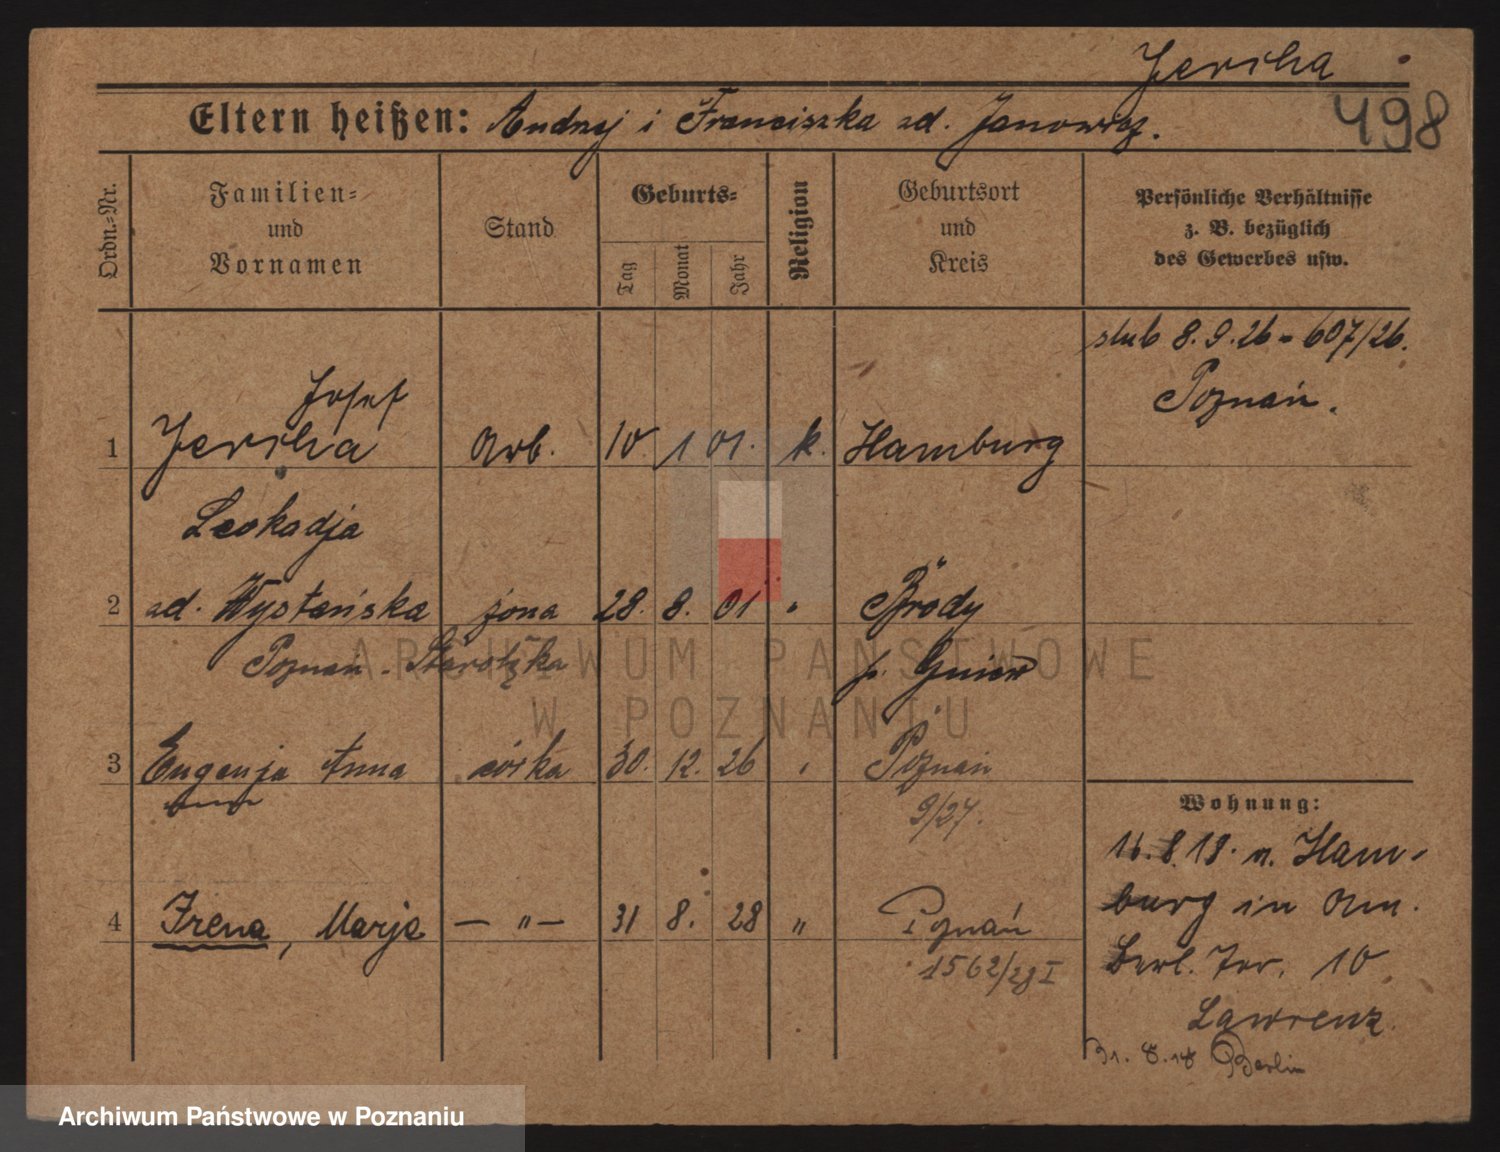 Jericha
498
Eltern heißen: Andrzej i Franciszka zd. Janowicz.
Ordn.-Nr.
Familien- und Vornamen
Stand
Geburts-
Tag
Monat
Jahr
Religion
Geburtsort und Kreis
Persönliche Verhältnisse
z. B. bezüglich
des Gewerbes usw.
ślub 8.9.26 - 607/26.
Poznań.
Josef
1 Jericha Arb. 10. 1 01. k. Hamburg
Leokadja
2 zd. Wystańska żona 28. 8. 01 " Brody
Poznań - Starołęka p. Gniew
3 Eugenja Anna córka 30. 12. 26 " Poznań
9/27.
Wohnung:
16.8.18. v. Ham-
4 Irena, Marja — " — 31 8. 28 " Poznań
burg in Arn.
1562/28 I
Berl. Tor. 10
Lawrenz
31. 8. 18 Berlin
ARCHIWUM PAŃSTWOWE
W POZNANIU
Archiwum Państwowe w Poznaniu